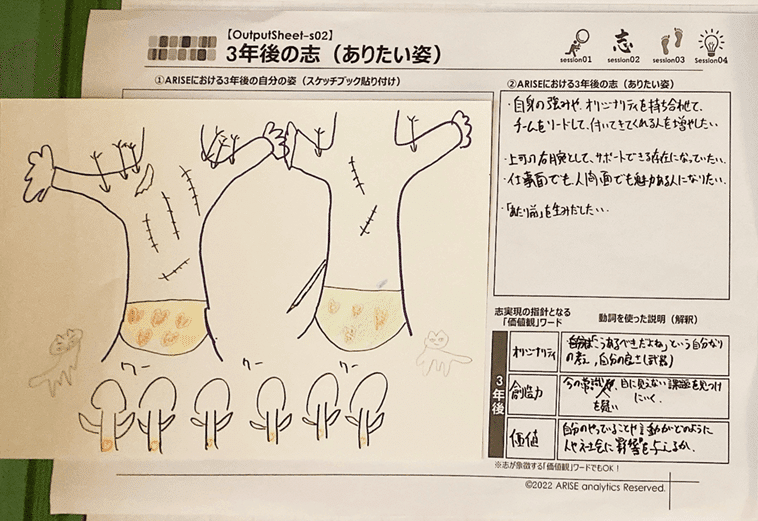 【OutputSheet-s02】
3年後の志（ありたい姿）
session01
志
session02
session03
Session04
①ARISEにおける3年後の自分の姿（スケッチブック貼り付け）
②ARISEにおける3年後の志（ありたい姿）
・自身の強みや、オリジナリティを持ち合わせて、
チームをリードして、付いてきてくれる人を増やしたい
・上司の右腕として、サポートできる存在になっていたい。
・仕事面でも、人間面でも魅力ある人になりたい。
・「あたり前」を生みだしたい。
クー
クー
クー
志実現の指針となる
「価値観」ワード
動詞を使った説明（解釈）
3年後
オリジナリティ
「こうあるべきだよね」という自分なり
の考え、自分の良さ(武器)
創造力
今の常識
を疑い
目に見えない課題を見つけ
にいく。
価値
自分のやっていることや言動がどのように
人や社会に影響を与えるか。
※志が象徴する「価値観」ワードでもOK！
©2022 ARISE analytics Reserved.